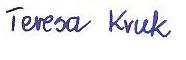 Teresa Kruk